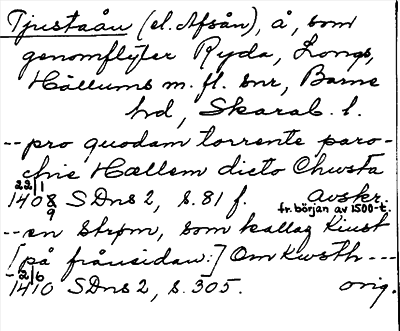 Tjustaån (el. Afsån), å, som
genomflyter Ryda, Longs,
Hällums m. fl. snr, Barne
hd, Skarab. l.
-- pro quodam torrente paro-
chie Hællem dicto Chwsta
22/1
1408 SDns 2, s. 81 f. avskr.
9 fr. början av 1500-t.
-- en strøm, som kallag Kiust
[på frånsidan:] Om Kwsth ---
- 2/6
1410 SDns 2, s. 305. orig.